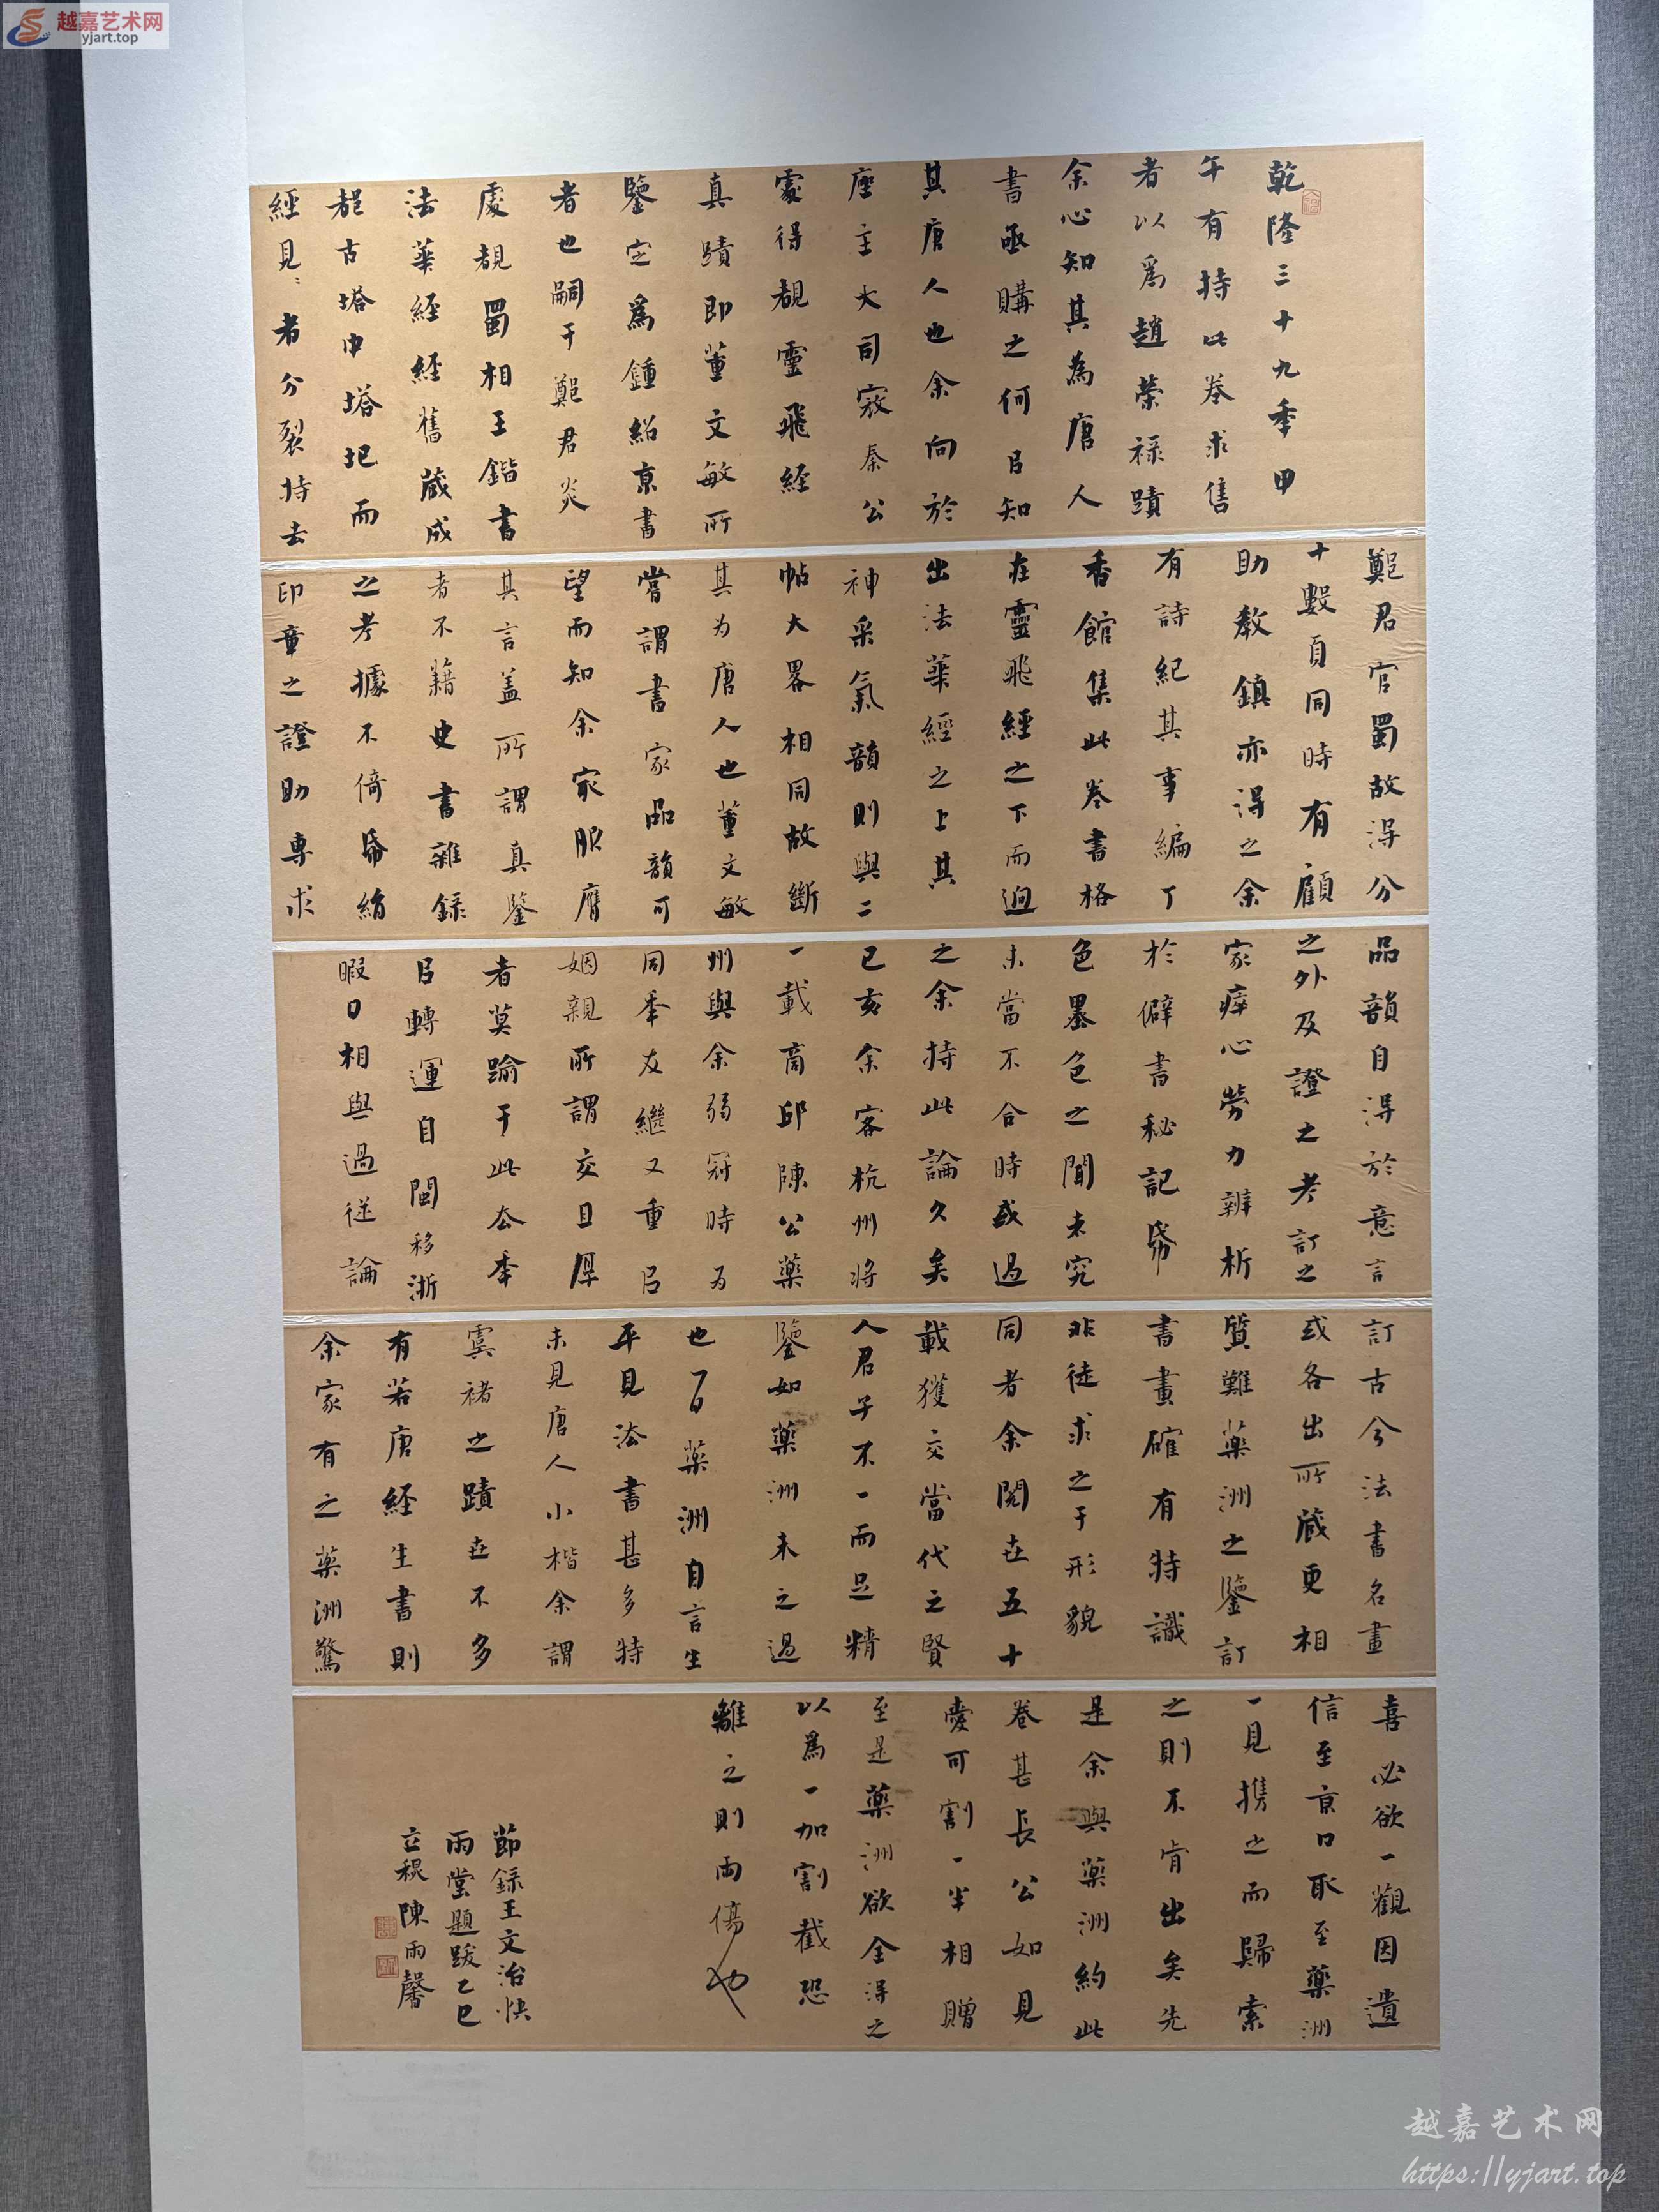 越嘉艺术网
yjart.top
乾隆三十九季甲
午有持此卷求售
者以爲趙榮祿蹟
余心知其為唐人
書亟購之何㠯知
其唐人也余向於
座主大司寇秦公
處得覩靈飛經
真蹟即董文敏所
鑒定爲鍾紹京書
者也嗣于鄭君炎
處覩蜀相王鍇書
法華經經舊藏成
都古塔中塔圮而
經見〻者分裂持去
鄭君官蜀故得分
十數頁同時有顧
助教鎮亦得之余
有詩紀其事編丁
香館集此卷書格
在靈飛經之下而迥
出法華經之上其
神采氣韻則與二
帖大畧相同故斷
其为唐人也董文敏
嘗謂書家品韻可
望而知余最服膺
其言盖所謂真鑒
者不藉史書雜錄
之考據不倚帋絹
印章之證助專求
品韻自得於意言
之外及證之考訂之
家瘁心勞力辨析
於僻書秘記帋
色墨色之間未究
未當不合時或過
之余持此論久矣
已亥余客杭州將
一載商邱陳公藥
州與余弱冠時为
同年友繼又重㠯
姻親所謂交且厚
者莫踰于此公本
㠯轉運自閩移浙
暇日相與過從論
訂古今法書名畫
或各出所藏更相
質難藥洲之鑒訂
書畫確有特識
非徒求之于形貌
同者余閱在五十
載獲交當代之賢
人君子不一而足精
鑒如藥洲未之過
也一日藥洲自言生
平見法書甚多特
未見唐人小楷余謂
虞褚之蹟在不多
有若唐経生書則
余家有之藥洲驚
喜必欲一觀因遺
信至京口取至藥洲
一見攜之而歸索
之則不肯出矣先
是余與藥洲約此
卷甚長公如見
愛可割一半相贈
至是藥洲欲全得之
以爲一加割截恐
離之則兩傷也
節錄王文治快
雨堂題跋乙巳
立秋陳雨馨
越嘉艺术网
https://yjart.top